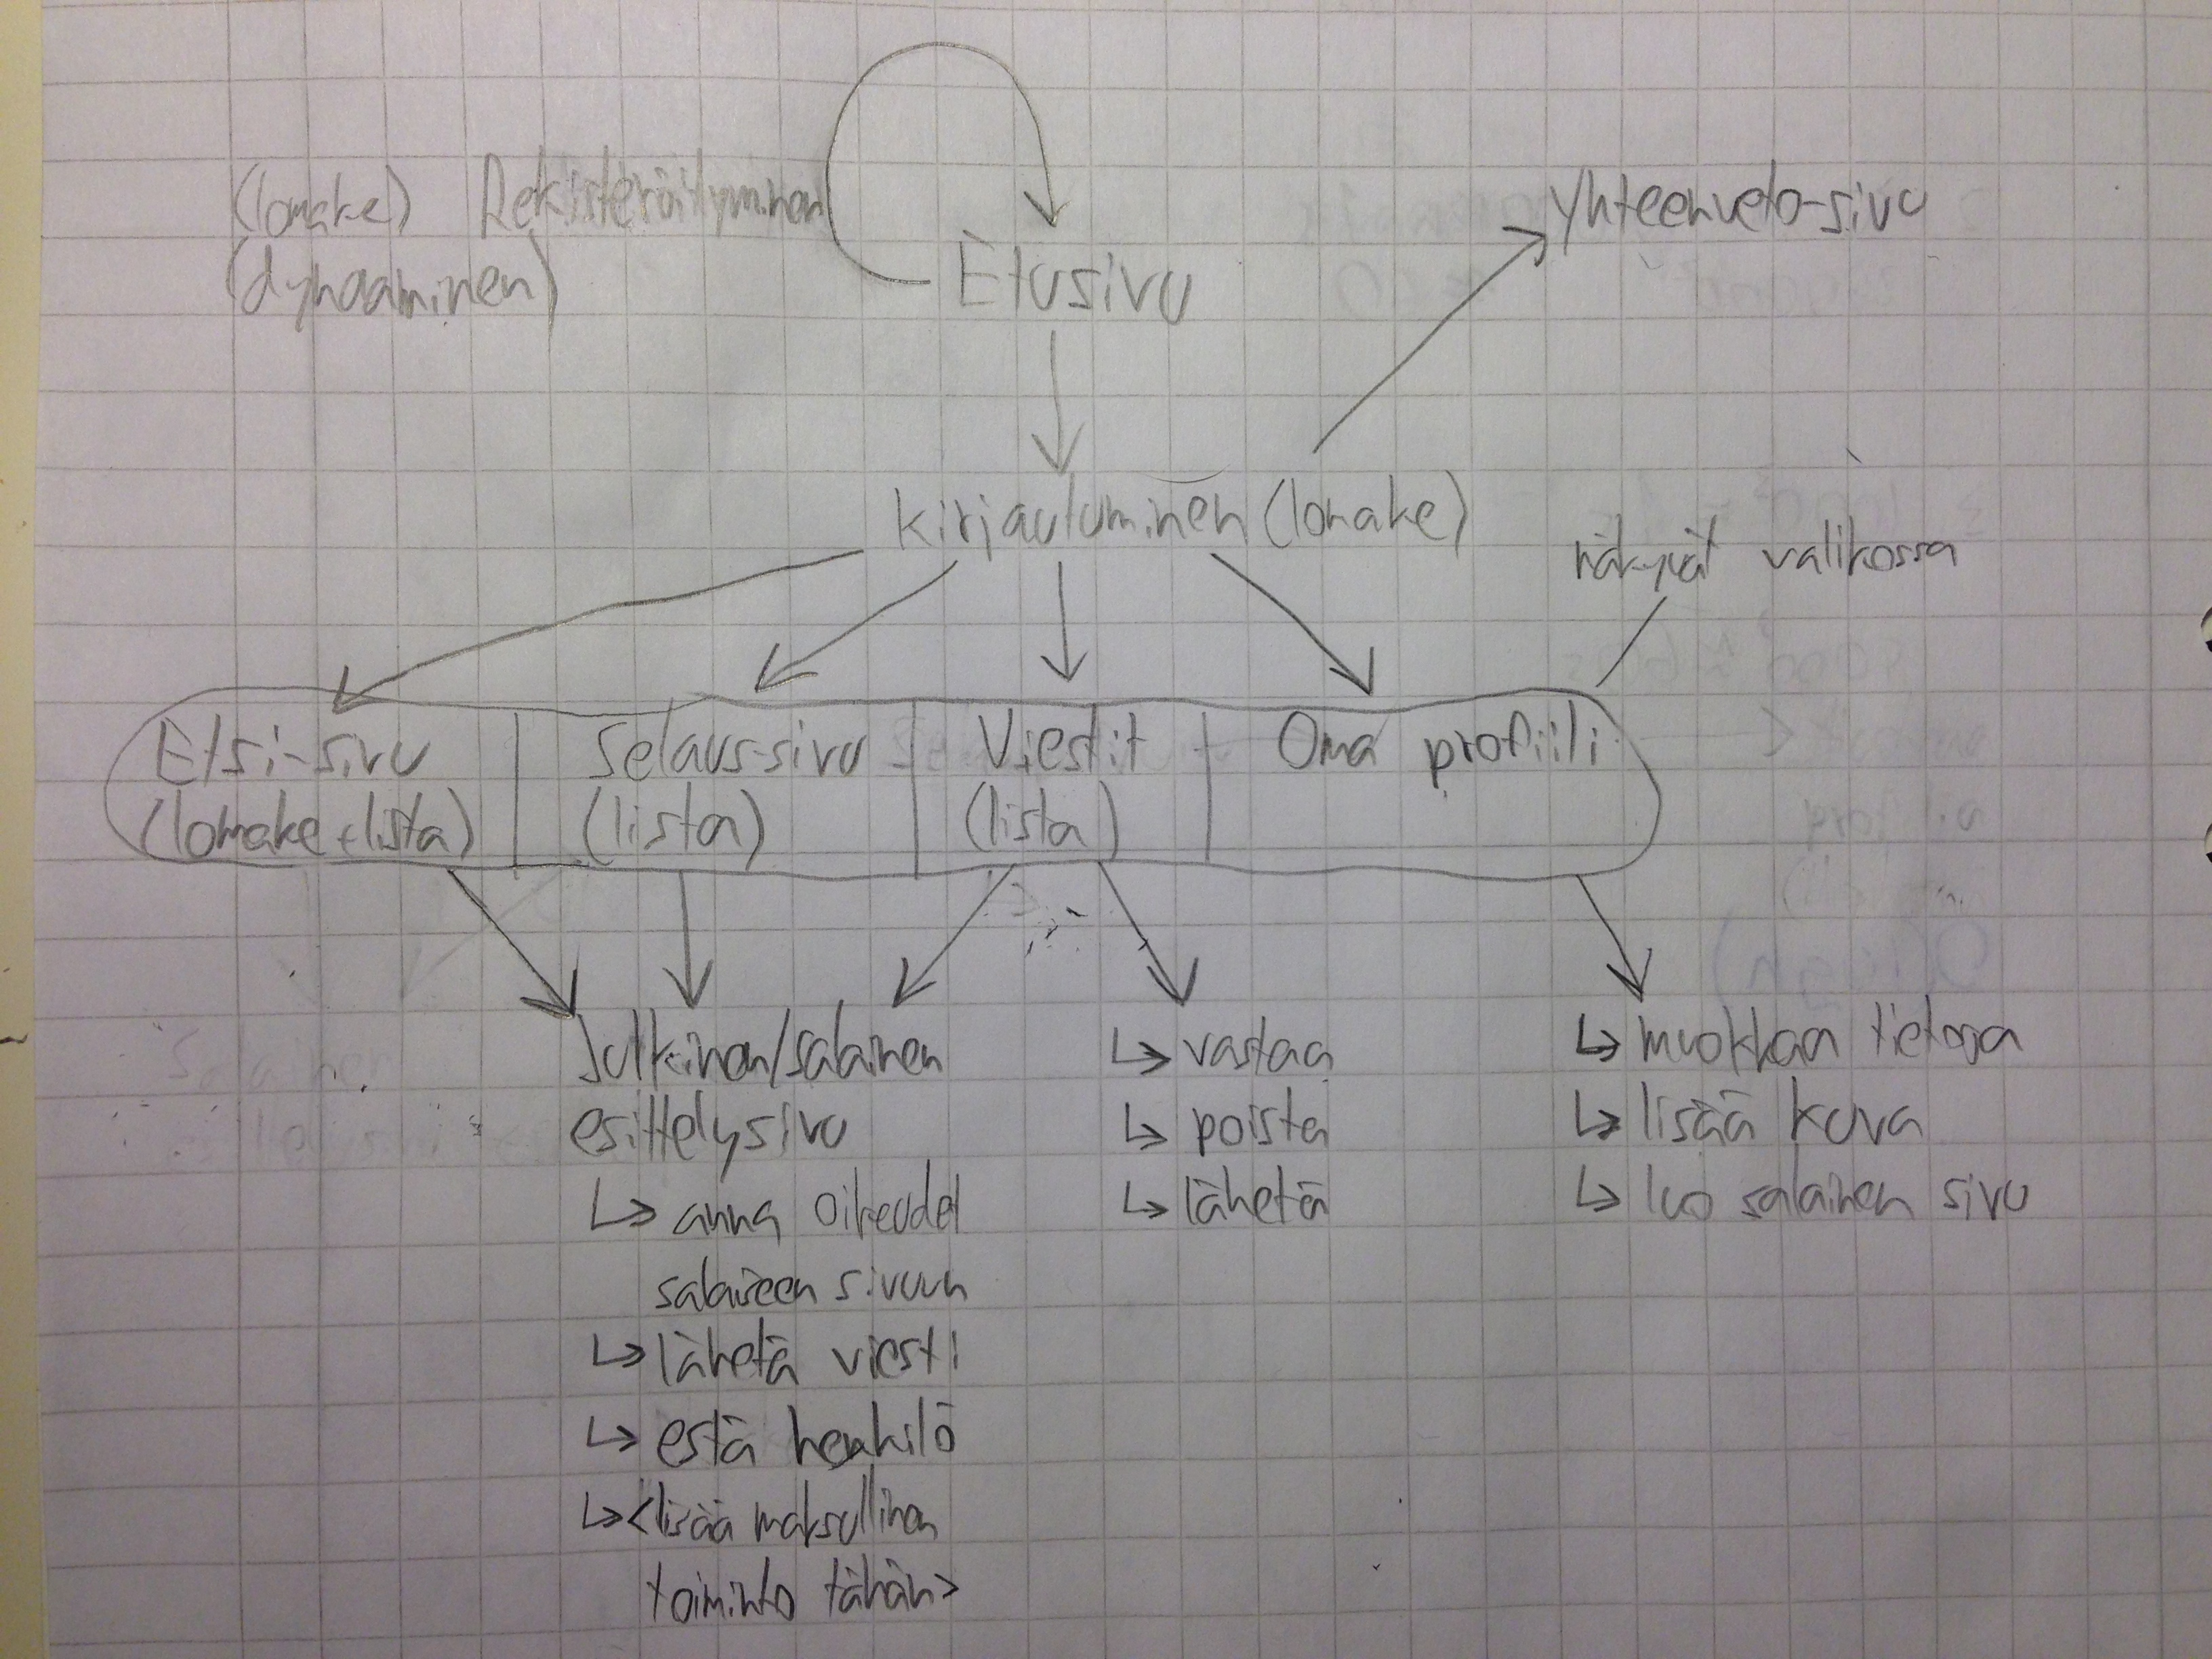 (lomake) Rekisteröityminen
(dynaaminen)
Etusivu
Yhteenveto-sivu
kirjautuminen (lomake)
näkyvät valikossa
Etsi-sivu
(lomake+lista)
Selaus-sivu
(lista)
Viestit
(lista)
Oma profiili
Julkinen/salainen
esittelysivu
↳ anna oikeudet
salaiseen sivuun
↳ lähetä viesti
↳ estä henkilö
↳ <lisää maksullinen
toiminto tähän>
↳ vastaa
↳ poista
↳ lähetä
↳ muokkaa tietoja
↳ lisää kuva
↳ luo salainen sivu